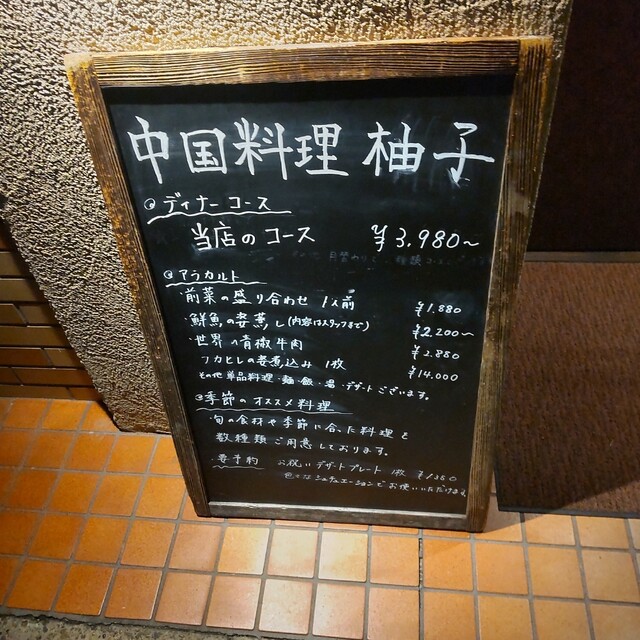 中国料理 柚子
ディナーコース
当店のコース ¥3,980〜
アラカルト
・前菜の盛り合わせ 1人前 ¥1,880
・鮮魚の姿蒸し(内容はスタッフまで) ¥2,200〜
・世界の青椒牛肉 ¥2,880
フカヒレの姿煮込み 1枚 ¥14,000
その他 単品料理・麺・飯・湯・デザートございます。
季節のオススメ料理
・旬の食材や季節に合った料理を
数種類ご用意しております。
要予約 お祝いデザートプレート 1枚 ¥1,380
色々なシュチュエーションでお使いいただけます